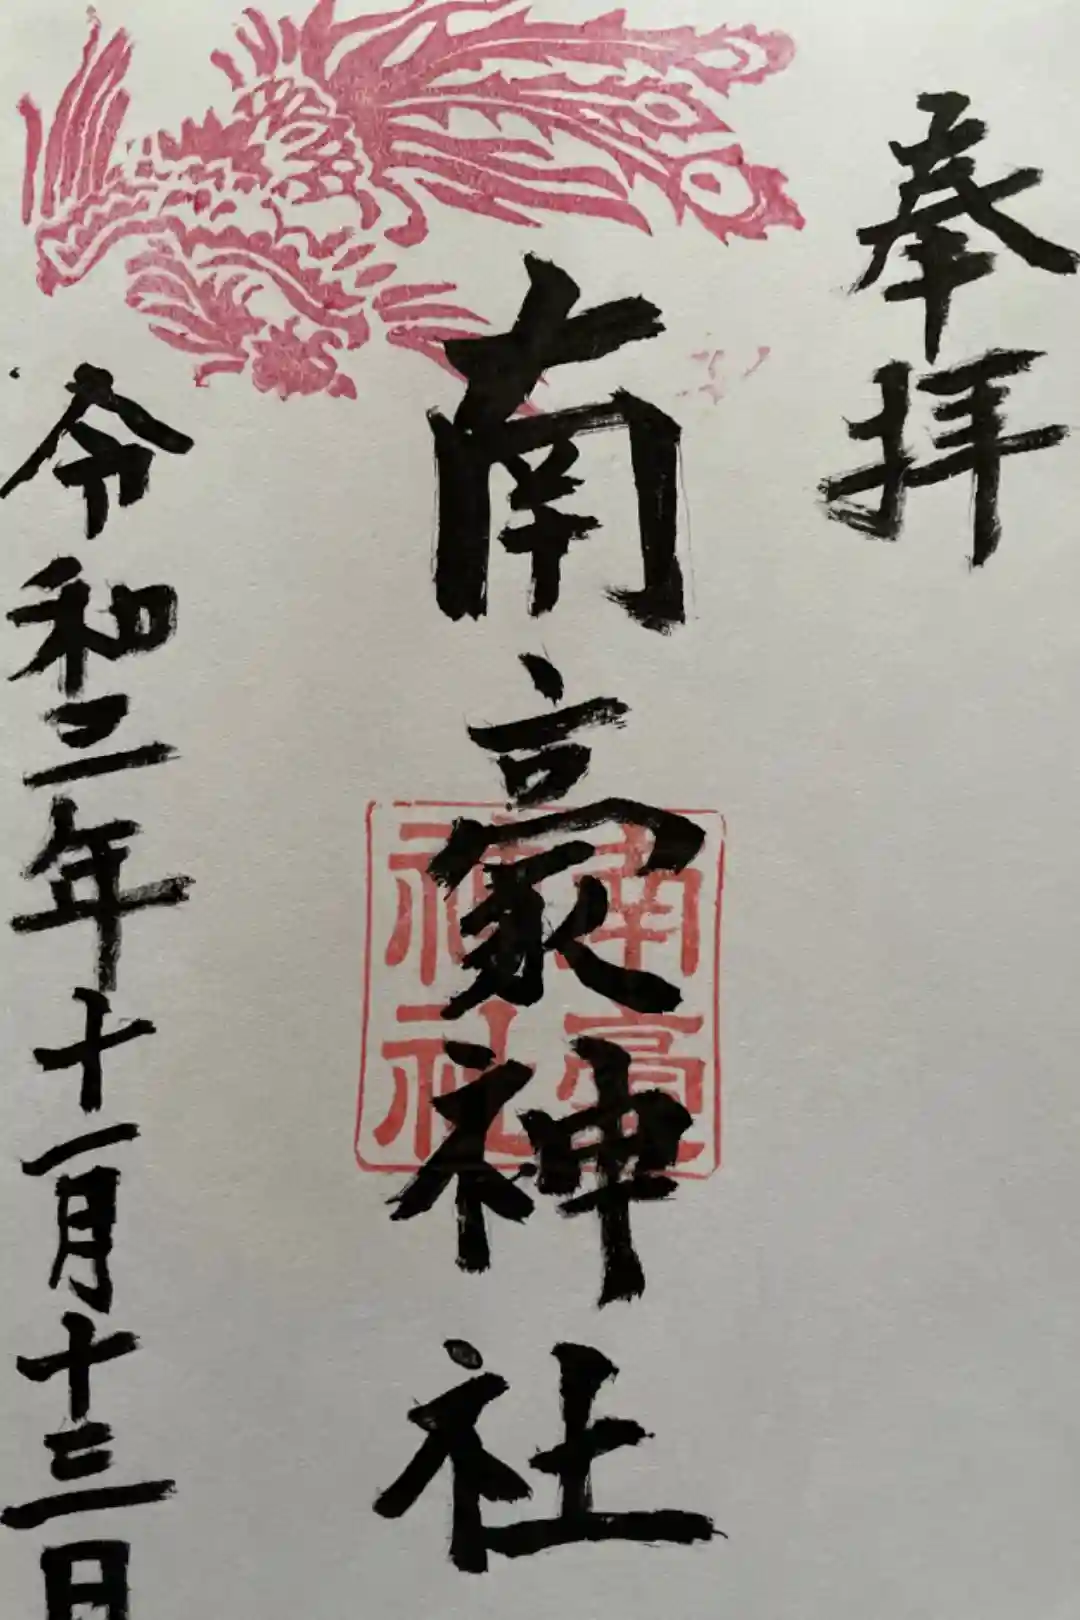 奉拝
南豪神社
令和三年十一月十三日